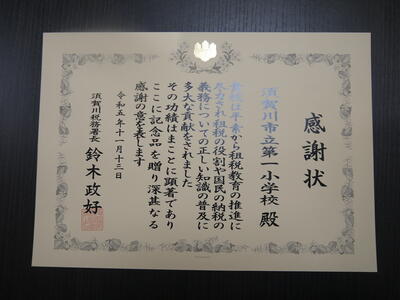 感謝状
須賀川市立第一小学校 殿
貴校は平素から租税教育の推進に
尽力され租税の役割や国民の納税の
義務についての正しい知識の普及に
多大な貢献をされました
その功績はまことに顕著であり
ここに記念品を贈り深甚なる
感謝の意を表します
令和五年十一月十三日
須賀川税務署長 鈴木政好